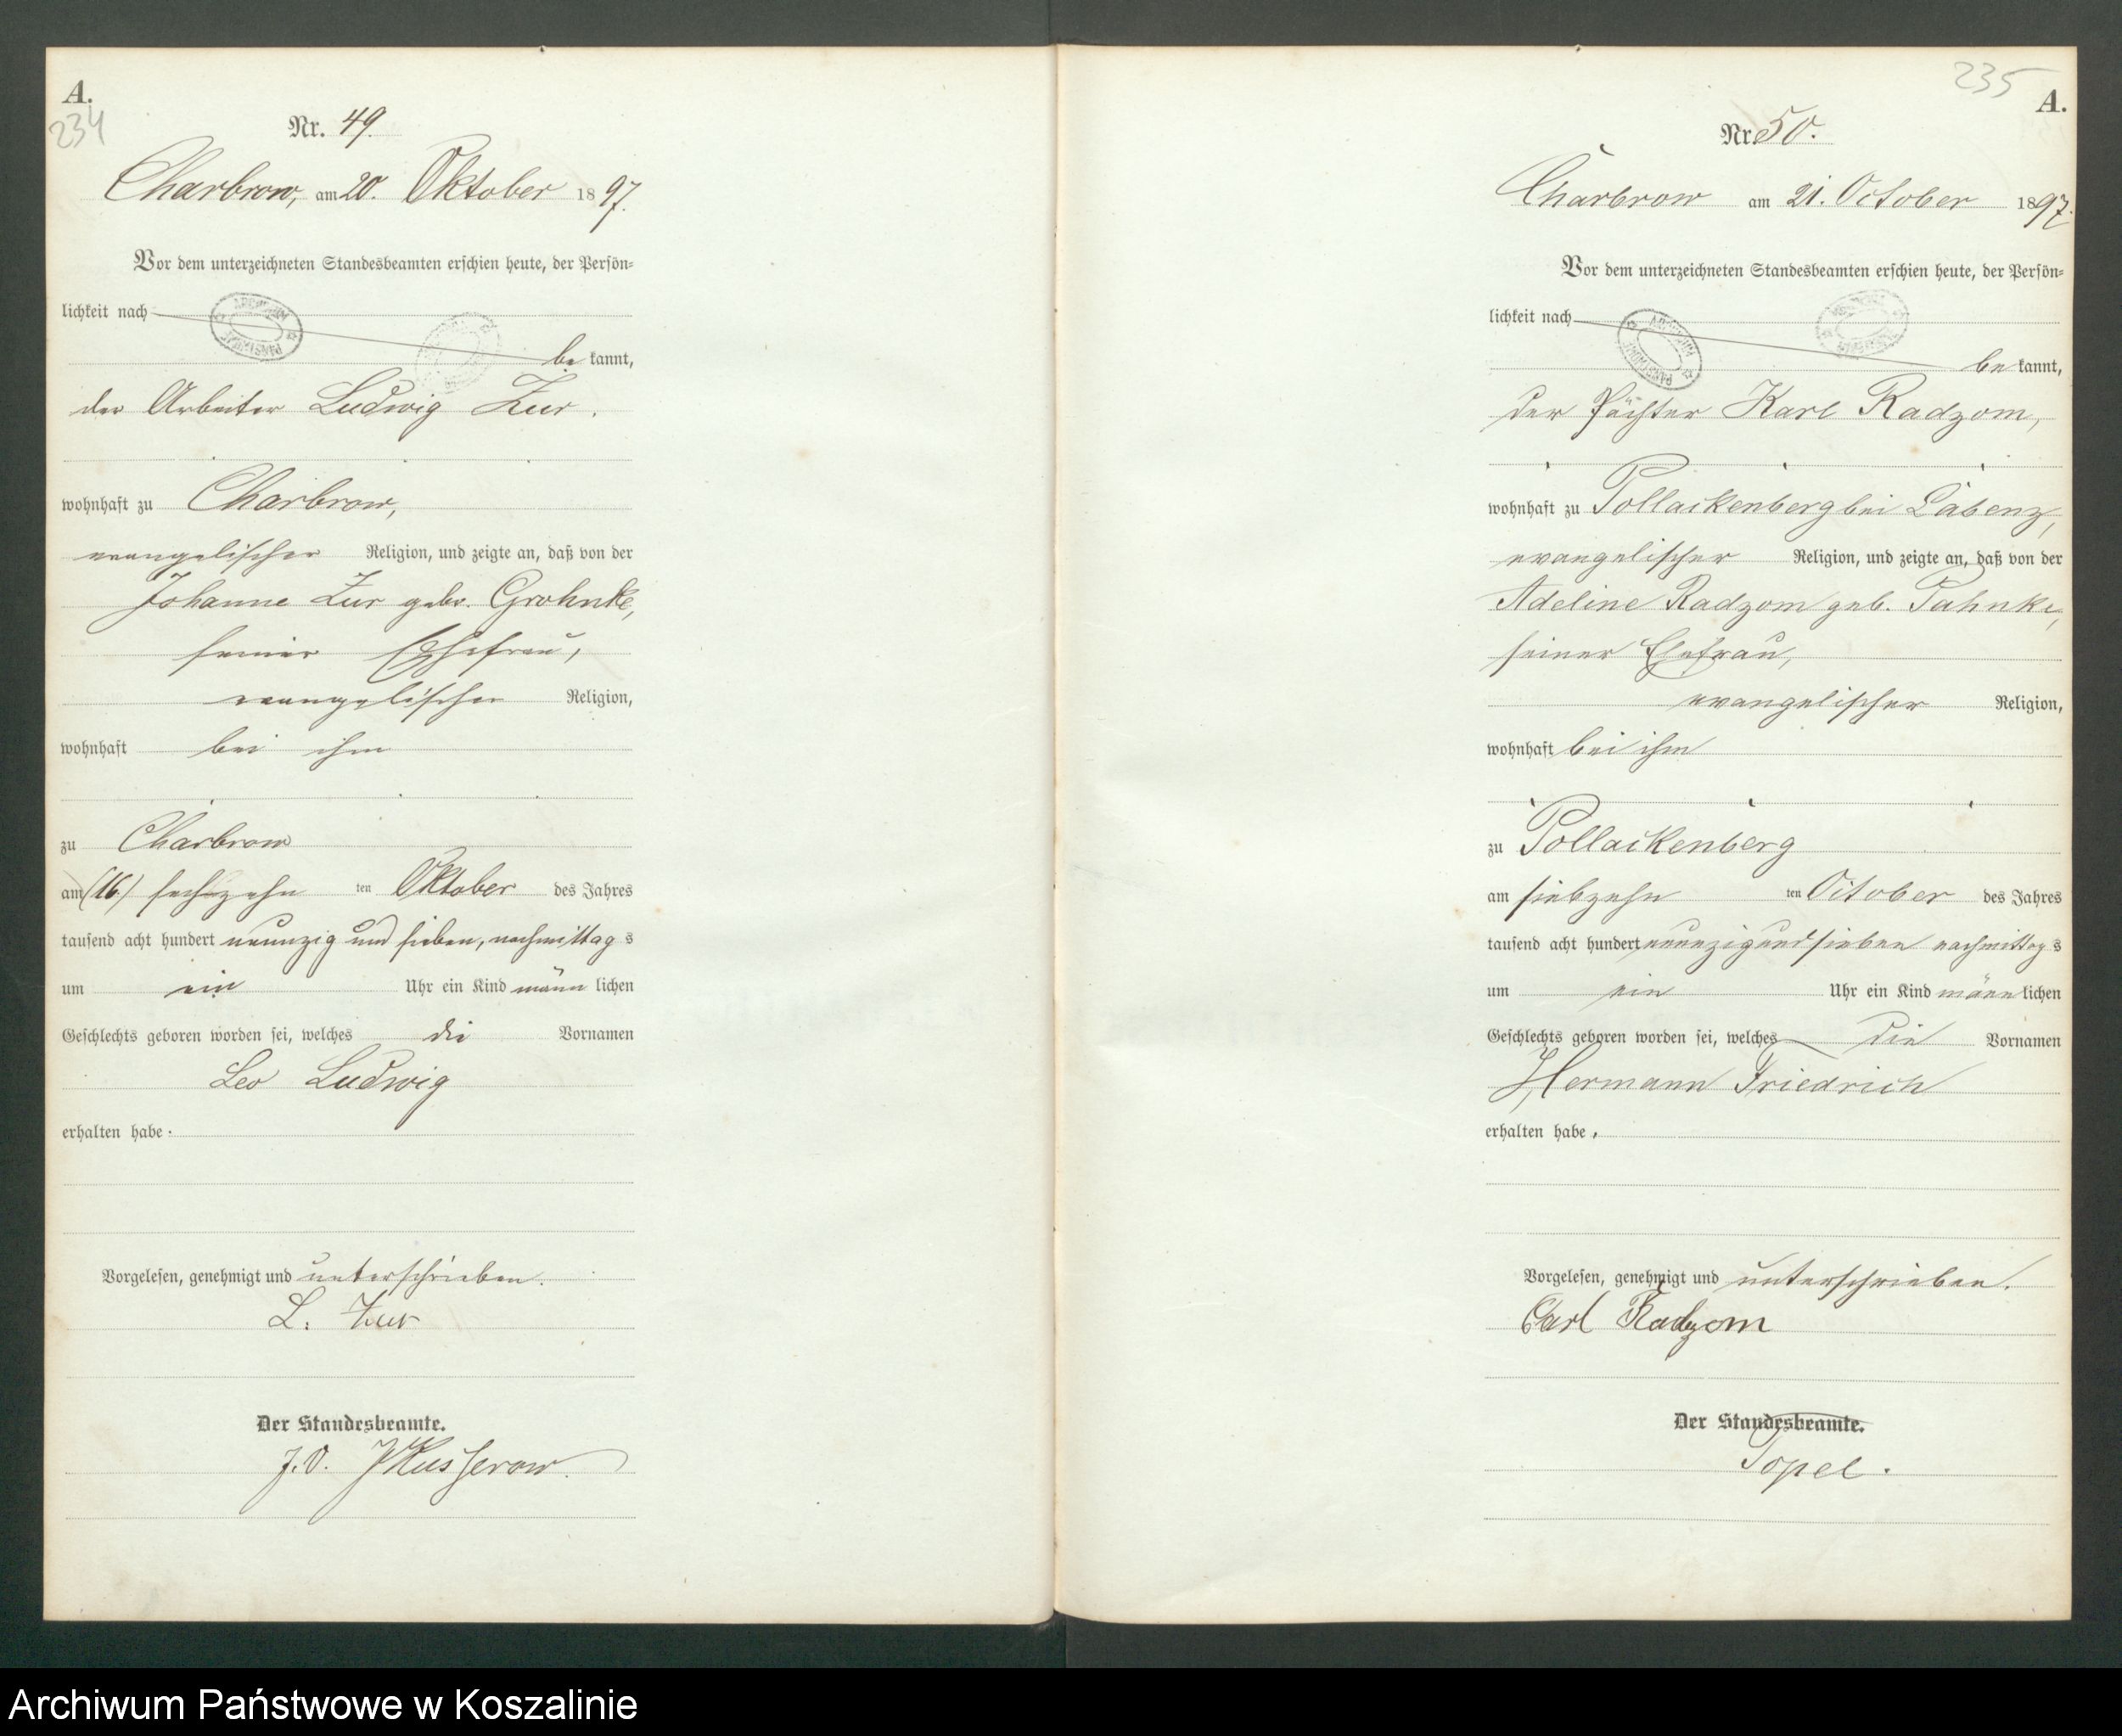 A.
234
Nr. 49.
Charbrow, am 20. Oktober 1897.
Vor dem unterzeichneten Standesbeamten erschien heute, der Persön-
lichkeit nach
bekannt,
der Arbeiter Ludwig Zur.
wohnhaft zu Charbrow,
evangelischer Religion, und zeigte an, daß von der
Johanne Zur geb. Grohnke,
seiner Ehefrau,
evangelischer Religion,
wohnhaft bei ihm
zu Charbrow
am (16) sechszehn ten Oktober des Jahres
tausend acht hundert neunzig und sieben, nachmittags
um ein Uhr ein Kind männlichen
Geschlechts geboren worden sei, welches die Vornamen
Leo Ludwig
erhalten habe.
Vorgelesen, genehmigt und unterschrieben.
L. Zur
Der Standesbeamte.
J.V. Kusserow.
235
A.
Nr. 50.
Charbrow am 21. October 1897.
Vor dem unterzeichneten Standesbeamten erschien heute, der Persön-
lichkeit nach
bekannt,
der Pächter Karl Radzom,
wohnhaft zu Pollackenberg bei Labenz,
evangelischer Religion, und zeigte an, daß von der
Adeline Radzom geb. Pahnke,
seiner Ehefrau,
evangelischer Religion,
wohnhaft bei ihm
zu Pollackenberg
am siebzehn ten October des Jahres
tausend acht hundert neunzig und sieben nachmittags
um ein Uhr ein Kind männlichen
Geschlechts geboren worden sei, welches die Vornamen
Hermann Friedrich
erhalten habe.
Vorgelesen, genehmigt und unterschrieben.
Carl Radzom
Der Standesbeamte.
Topel.
Archiwum Państwowe w Koszalinie